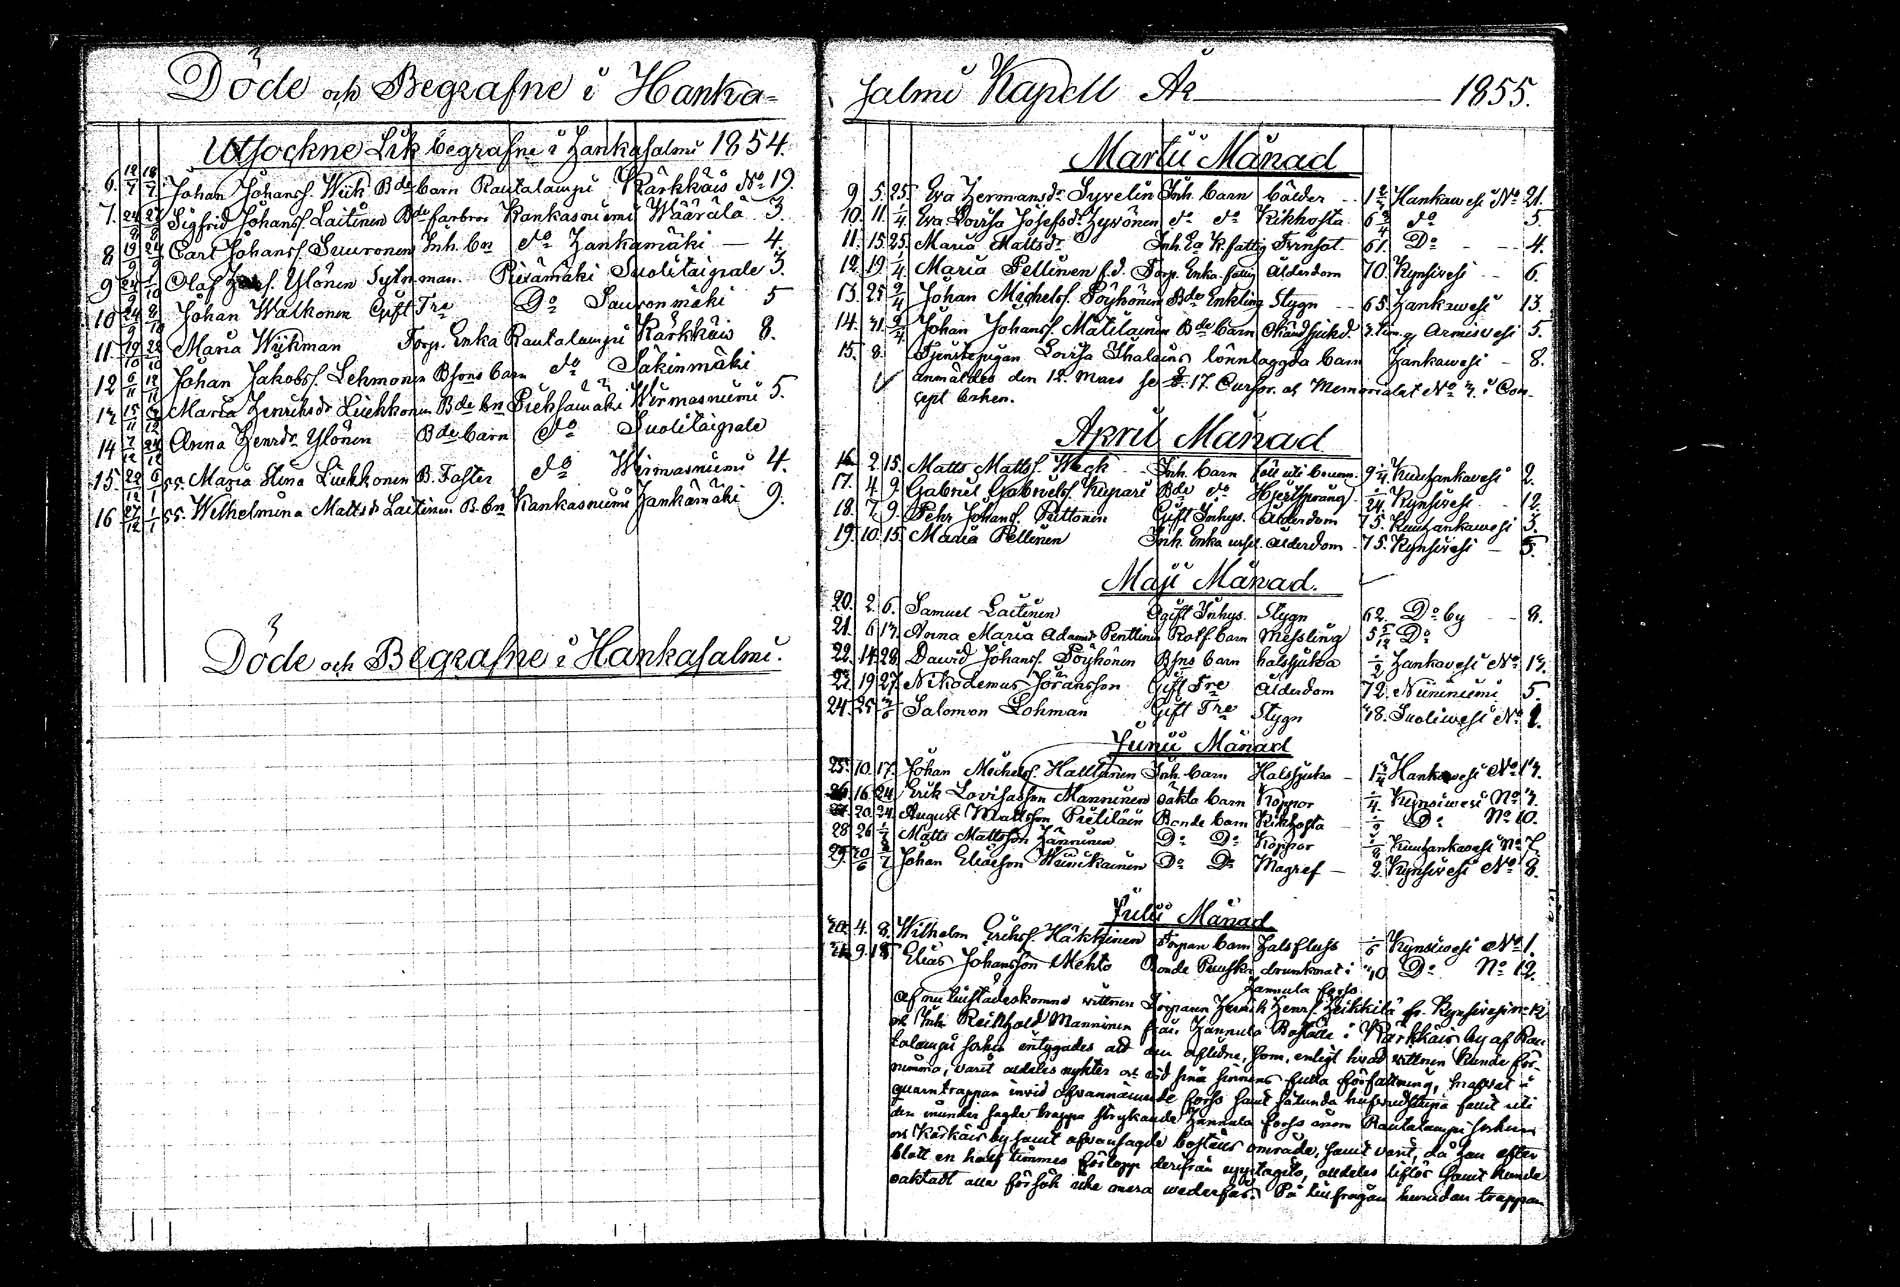 Döde och Begrafne i Hanka-
Utsockne Lik begrafne i Hankasalmi 1854.
6. 12/7 18/7 Johan Johanss. Wiik Bde barn Rautalampi Kärkkäis No 19.
7. 24/8 27/8 Sigfrid Johanss. Laitinen Bde farbror Kankasniemi Wäärälä 3.
8 19/9 24/9 Carl Johanss. Suuronen Inh. bn do Hankamäki — 4.
9 24/9 1/10 Olof Ylönen Sytn.man Piexämäki Suolitaipale 3.
10 24/9 8/10 Johan Walkonen Gift Tre Do Sauvonmäki 5
11 19/10 22/10 Maria Wiikman Torp. Enka Rautalampi Kärkkäis 8.
12 6/11 12/11 Johan Jakobs. Lehmonen Bsons barn do Säkinmäki
13 15/11 Maria Henriksdr Liukkonen Bde bn Pieksämäki Wirmasniemi 5.
14 7/12 24/12 Anna Henrdr Ylönen Bde barn do Suolitaipale
15. 29/12 6/1 55. Maria Stina Liukkonen B. Faster do Wirmasniemi 4.
16 27/12 1/1 55. Wilhelmina Mattsdr Laitinen B. bn Kankasniemi Hankamäki 9.
Döde och Begrafne i Hankasalmi.
salmi Kapell År 1855.
Martii Månad
9. 5. 25. Eva Hermansdr Syvelin Inh. barn bölder Hankawesi No 21.
10. 11. 1/4 Eva Lovisa Josefsdr Hyvönen do do Kikhosta 6 do 5.
11. 15. 25. Maria Mattsdr Inh. Ea k. fattig Trånsot 61. Do — 4.
12. 19. 1/4 Maria Pellinen f.d. Torp. Enka fattig Ålderdom 70. Kynsivesi — 6.
13. 25 9/4 Johan Michelss. Pöyhönen Bde Enkling Stygn — 65. Hankawesi 13.
14. 31. 9/4 Johan Johanss. Matilainen Bde barn okänd sjukd. 3 tim. g. Armisvesi 5.
15. 8. Tjenstepigan Lovisa Thalains lönnlaggda barn Hankawesi — 8.
anmäldes den 12. Mars se 17. Curssor. och Memorialet No 3. i Con-
cept boken.
April Månad
16 2. 15. Matts Mattss. Weck Inh. barn föll uti brunn. 9 1/4 Kuuhankavesi 2.
17. 4. 9. Gabriel Gabrielss. Kupari Bde do Hjertsprång 1/24 Kynsivesi 12.
18. 7. 9. Pehr Johans. Puttonen Gift Inhys. Ålderdom 75. Kuuhankawesi 3.
19. 10. 15. Maria Pellinen Inh. Enka Ålderdom 75. Kynsivesi — 5.
Maji Månad.
20. 2. 6. Samuel Laitinen Ogift Inhys. Stygn 62. Do by — 8.
21. 6. 13. Anna Maria Adamsdr Penttinen Rotf barn Messling 5 5/12 Do
22. 14. 28. David Johanss. Pöyhönen Bsns barn halssjuka 1/2 Hankavesi No 13.
23. 19. 27. Nikodemus Göransson Gift Tre Ålderdom 72. Niininiemi 5.
24. 25. 3/6 Salomon Lohman Gift Tre Stygn 48. Suoliwesi No 1.
Junii Månad
25. 10. 17. Johan Michelss. Halttunen Inh. barn Halssjuka — 1 3/4 Hankavesi No 13.
26. 16. 24. Erik Lovisasson Manninen oäkta barn Koppor 1/4 Kynsiwesi No 3.
27. 20. 24. August Mattsson Pietiläin Bonde barn Kikhosta 1/2 Do No 10.
28 26 1/7 Matts Mattsson Hänninen Do Do Koppor Kuuhankavesi No 7.
29. 30/6 8/7 Johan Eliasson Wiinikainen Do Do Magref — 2. Kynsivesi No 8.
Julii Månad.
30. 4. 8. Wilhelm Erikss. Häkkinen Torpare barn Halsfluss 1/6 Kynsiwesi No 1.
31. 9. 15 Elias Johansson Mehto Bonde drunknat i 40 Do No 12.
Hannula forss
af nu tillstädeskomne wittnen Torparen Henrik Henr. Heikkilä fr. Kynsivesi No 12
och Inh. Reinhold Manninen från Hannula Boställe i Kärkkäis by af Rau
talampi socken intygades att den aflidne, som, enligt hvad wittnen kunde för-
nimma, varit aldeles nykter och vid sina sinnens fulla författning, i
quarntrappan invid ofvannämnde forss samt sålunda hufvudstupa fallit uti
den under sagde trappa strykande Hannula forss inom Rautalampi socken
och Kärkkäis by samt ofvansagde boställes område, samt varit, då han efter
blott en half timmes förlopp derifrån upptagits, alldeles liflös samt kunde
oaktadt alla försök icke mera wederfås. På tillfrågan huruvudan trappan